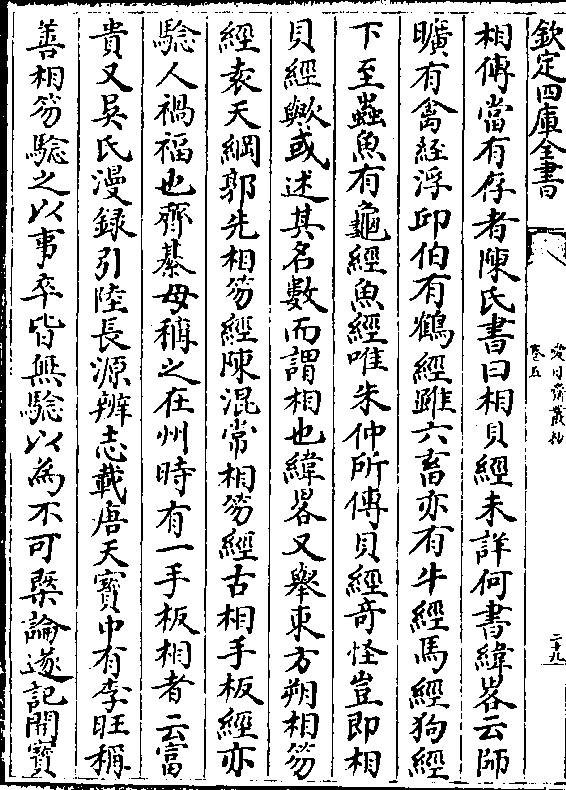 欽定四庫全書
愛日齋叢抄
卷五
二十九
相傳當有存者陳氏書曰相貝經未詳何書緯畧云師
曠有禽經浮邱伯有鶴經雖六畜亦有牛經馬經狗經
下至蟲魚有龜經魚經唯朱仲所傳貝經竒怪豈即相
貝經歟或述其名數而謂相也緯畧又舉東方朔相笏
經袁天綱郭先相笏經陳混常相笏經古相手板經亦
驗人禍福也齊綦毋稱之在州時有一手板相者云富
貴又吳氏漫録引陸長源辨志載唐天寶中有李旺稱
善相笏驗之以事卒皆無驗以為不可槩論遂記開寶